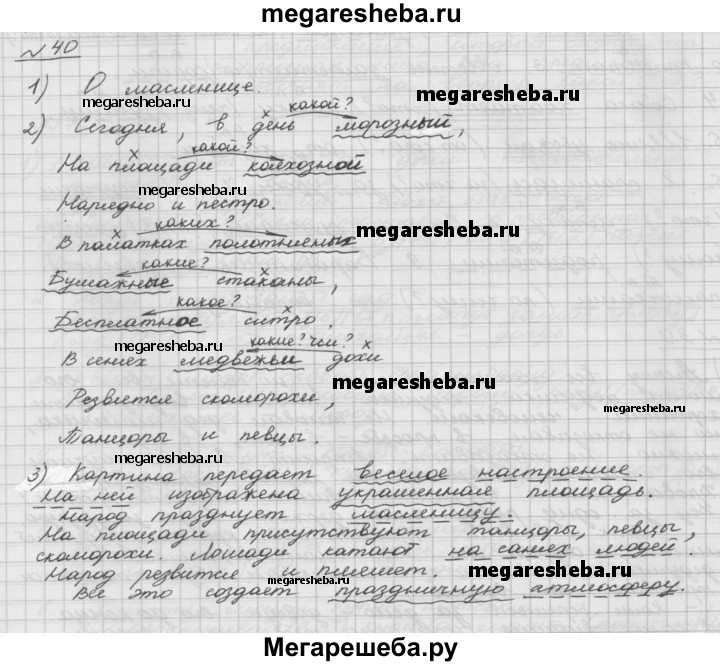 megaresheba.ru
№ 40
1) О масленице.
megaresheba.ru
megaresheba.ru
какой?
2) Сегодня, в день морозный,
какой?
На площади колхозной
megaresheba.ru
Нарядно и пестро.
каких?
megaresheba.ru
В палатках полотняных
какие?
Бумажные стаканы,
какое?
Бесплатное ситро.
megaresheba.ru
какие? чьи?
В санях медвежьи дохи
megaresheba.ru
Резвятся скоморохи,
megaresheba.ru
Танцоры и певцы.
3) Картина передает веселое настроение.
На ней изображена украшенная площадь.
Народ празднует масленицу.
На площади присутствуют танцоры, певцы,
скоморохи. Лошади катают на санях людей.
Народ резвится и пляшет.
megaresheba.ru
megaresheba.ru
Все это создает праздничную атмосферу.
Мегарешеба.ру